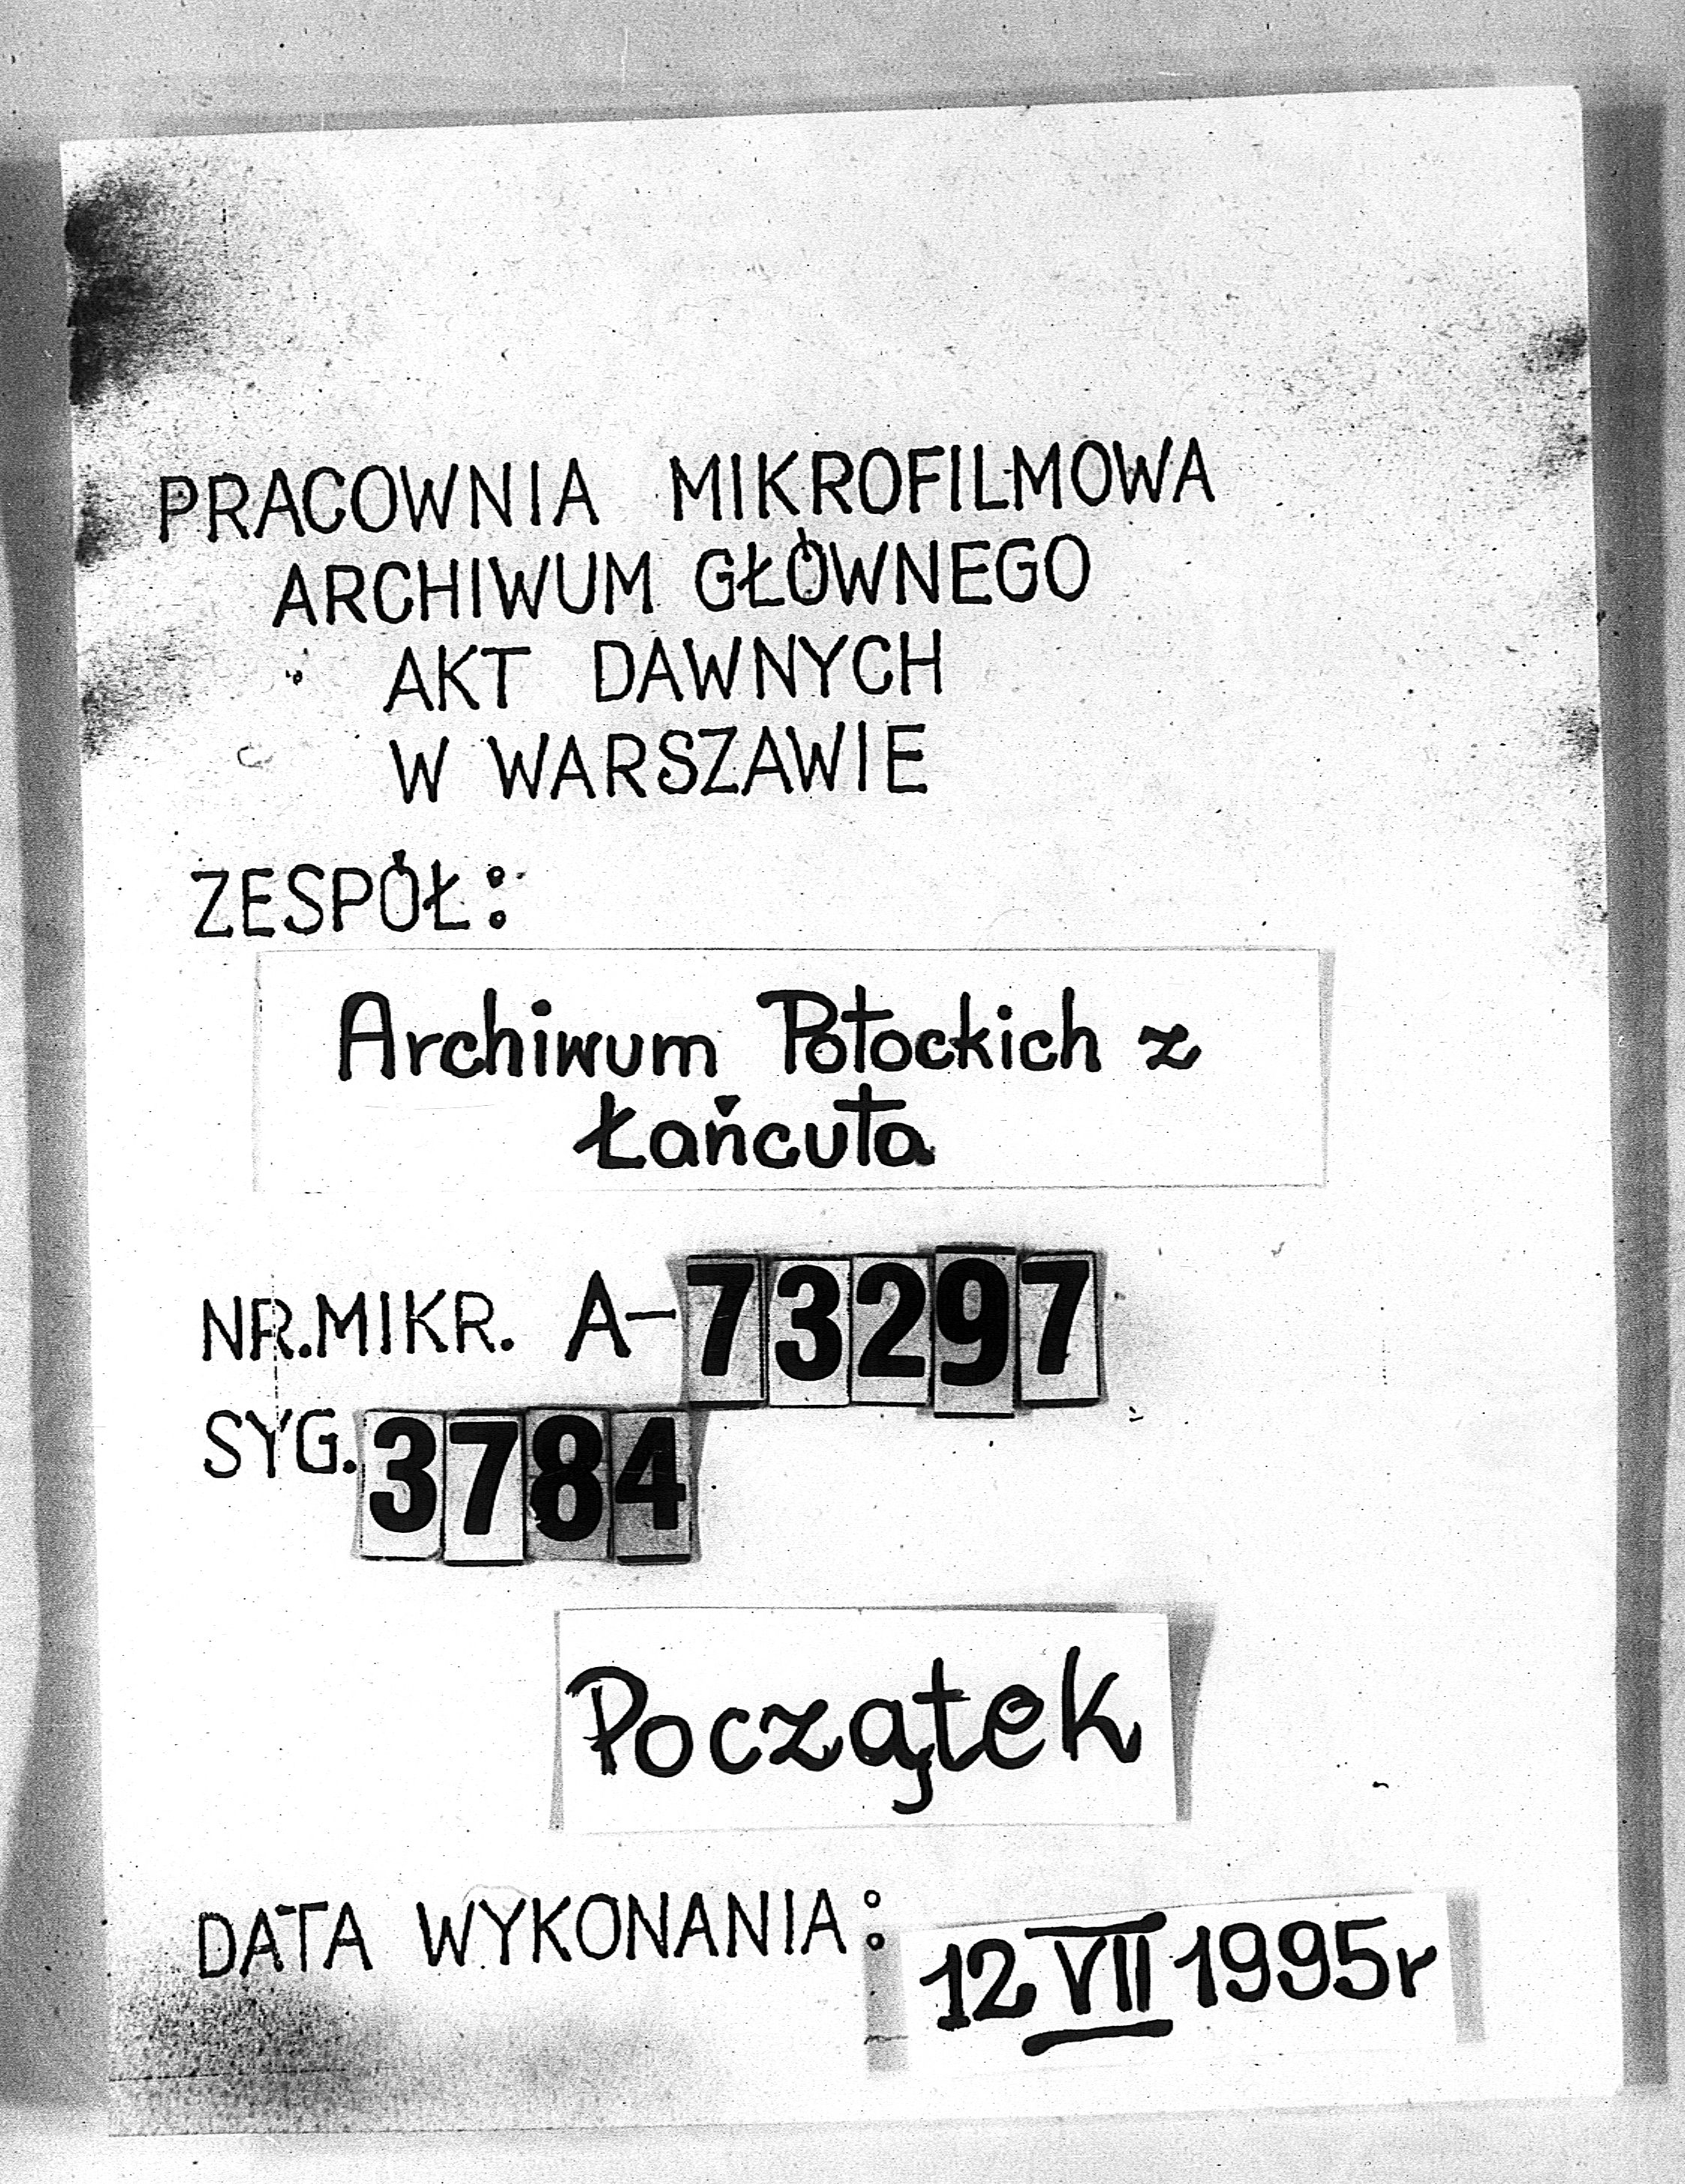 PRACOWNIA MIKROFILMOWA
ARCHIWUM GŁÓWNEGO
AKT DAWNYCH
W WARSZAWIE
ZESPÓŁ:
Archiwum Potockich z
Łańcuta
NR.MIKR. A-73297
SYG. 3784
Początek
DATA WYKONANIA: 12 VII 1995r